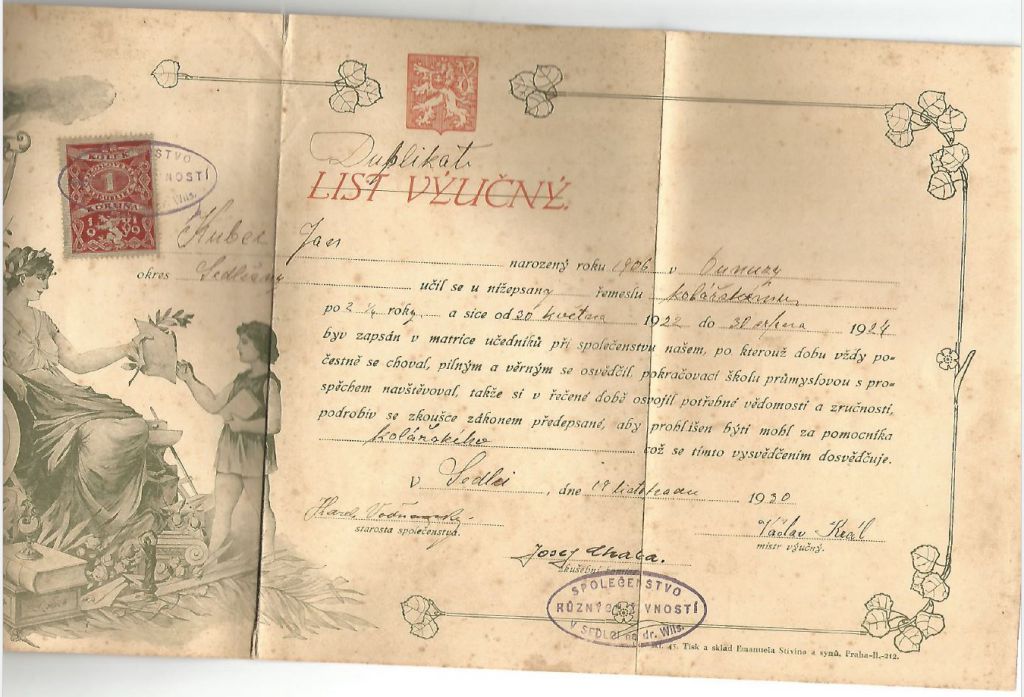 Duplikát
LIST VÝUČNÝ.
KOLEK
1
KORUNA
Kubec Jan narozený roku 1906 v
okres Sedlčany učil se u nížepsaný řemeslu kolářskému
po 2 ¼ roky a sice od 20 května 1922 do 30 srpna 1924
byv zapsán v matrice učedníků při společenstvu našem, po kterouž dobu vždy po-
čestně se choval, pilným a věrným se osvědčil, pokračovací školu průmyslovou s pro-
spěchem navštěvoval, takže si v řečené době osvojil potřebné vědomosti a zručnosti,
podrobiv se zkoušce zákonem předepsané, aby prohlášen býti mohl za pomocníka
kolářského což se tímto vysvědčením dosvědčuje.
V Sedlci, dne 19 listopadu 1930
Karel
starosta společenstva.
Václav Král
mistr výučný.
Josef
zkušební komisař
SPOLEČENSTVO
RŮZNÝCH ŽIVNOSTÍ
V SEDLCI na dr. Wils.
Tisk a sklad Emanuela Stivína a synů, Praha-II.-212.